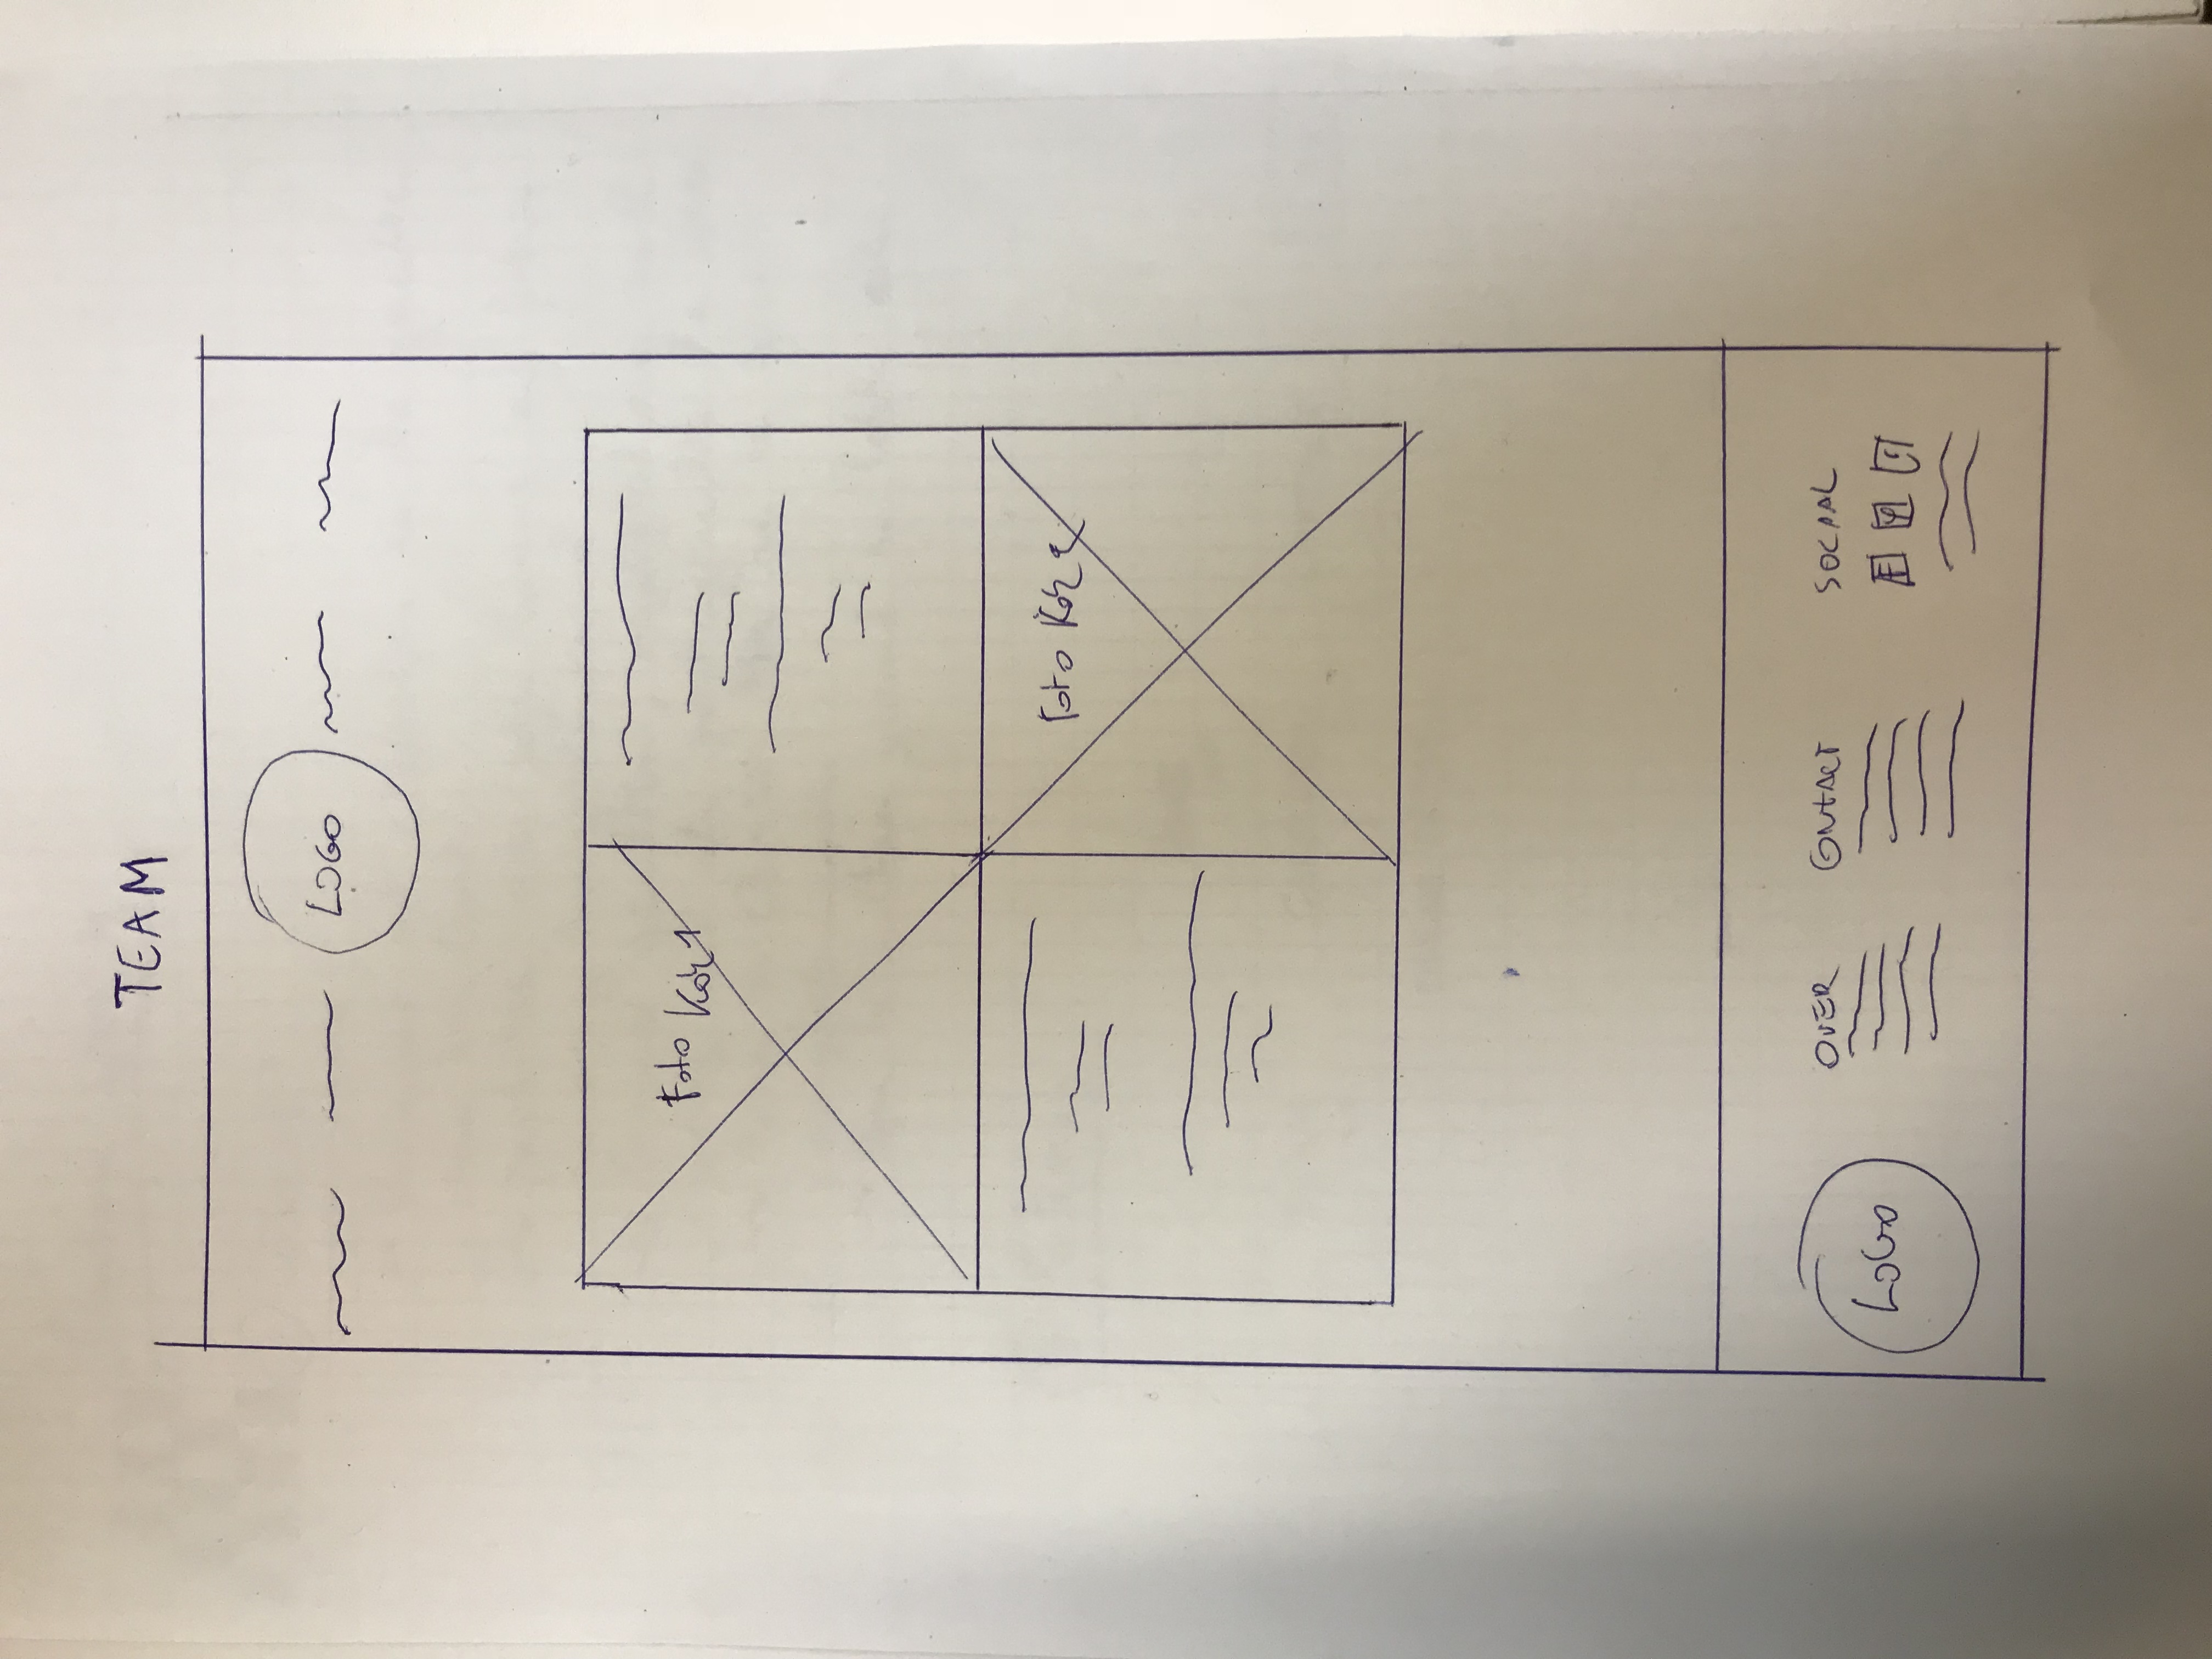 TEAM
LOGO
Foto Kok 1
Foto Kok 2
LOGO
OVER
CONTACT
SOCIAAL
F